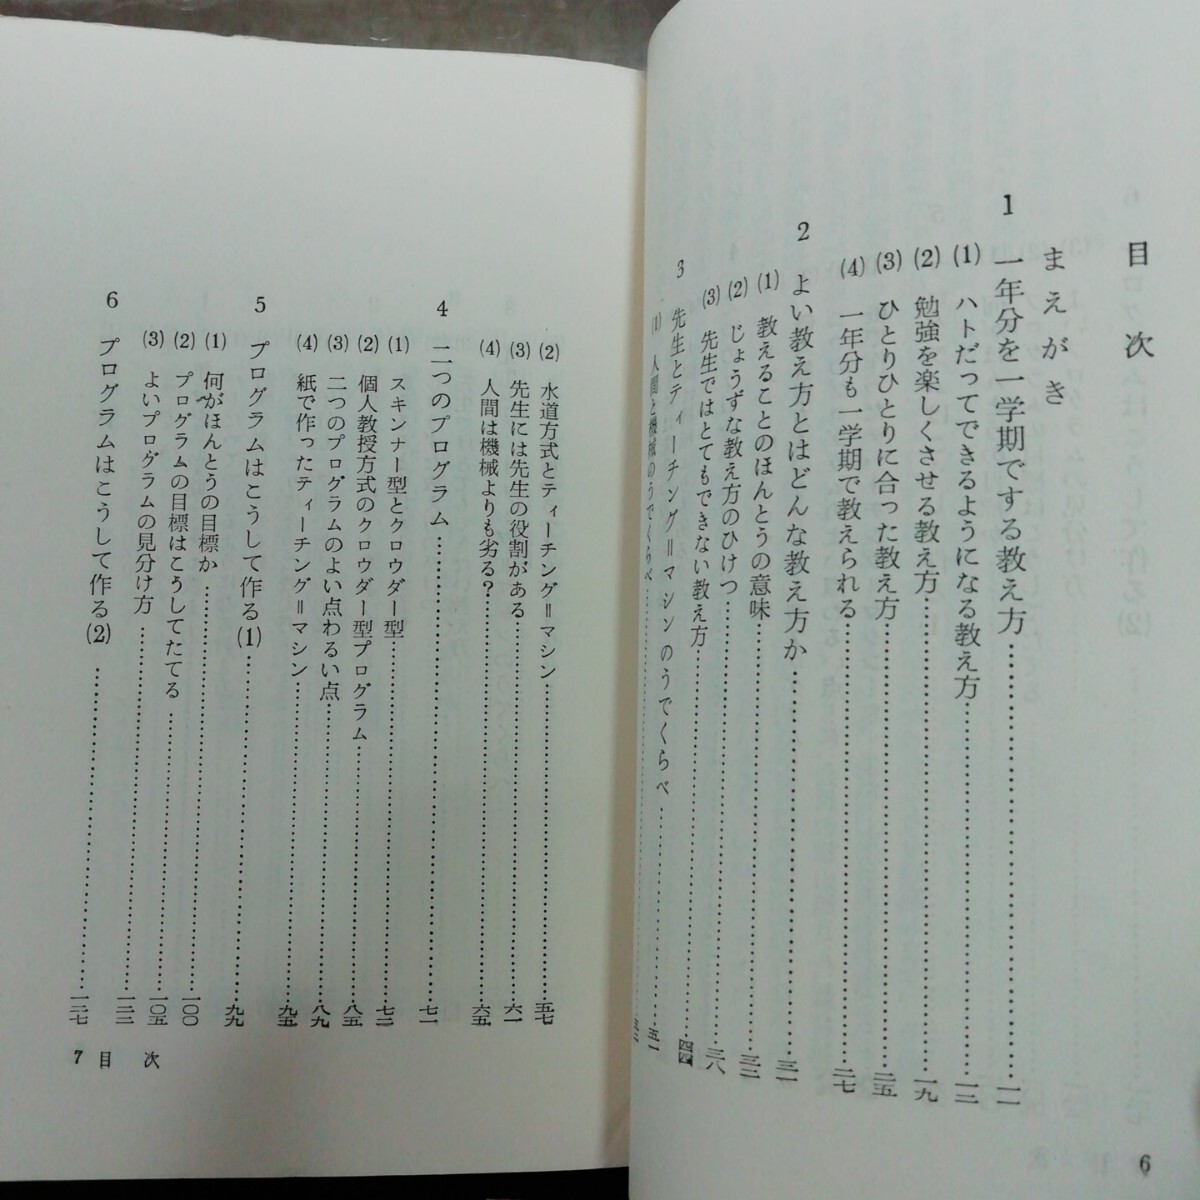 目次
まえがき
1 一年分を一学期でする教え方……一一
(1) ハトだってできるようになる教え方……一二
(2) 勉強を楽しくさせる教え方……一九
(3) ひとりひとりに合った教え方……二五
(4) 一年分も一学期で教えられる……二七
2 よい教え方とはどんな教え方か……三一
(1) 教えることのほんとうの意味……三二
(2) じょうずな教え方のひけつ……三八
(3) 先生ではとてもできない教え方……
3 先生とティーチング＝マシンのうでくらべ……五一
(1) 人間と機械のうでくらべ……
6
(2) 水道方式とティーチング＝マシン……五七
(3) 先生には先生の役割がある……六一
(4) 人間は機械よりも劣る？……六五
4 二つのプログラム……七一
(1) スキンナー型とクロウダー型……七二
(2) 個人教授方式のクロウダー型プログラム……八五
(3) 二つのプログラムのよい点わるい点……八九
(4) 紙で作ったティーチング＝マシン……九五
5 プログラムはこうして作る(1)……九九
(1) 何がほんとうの目標か……一〇〇
(2) プログラムの目標はこうしてたてる……一〇五
(3) よいプログラムの見分け方……一二二
6 プログラムはこうして作る(2)……一二七
7 目次